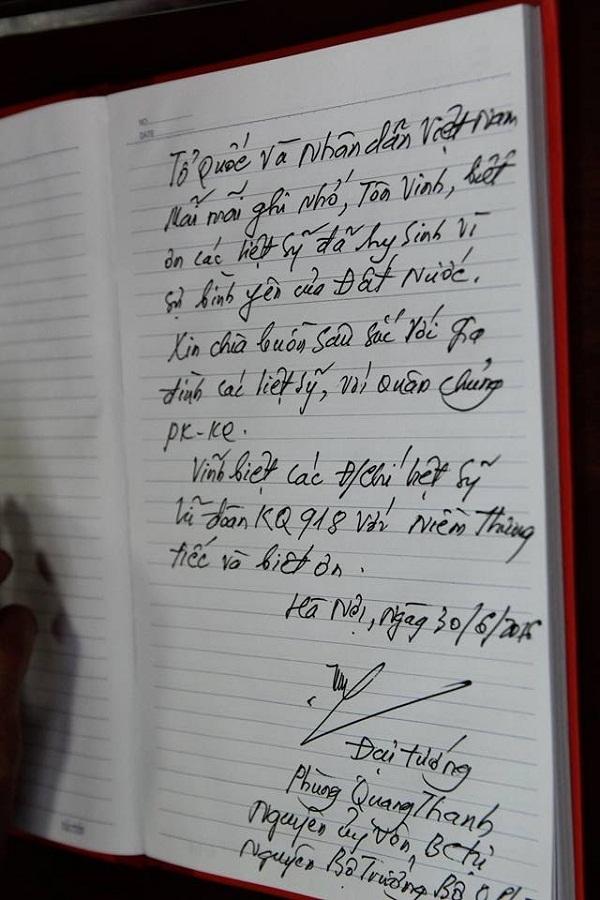 NO.
DATE
Tổ Quốc và Nhân dân Việt Nam
Mãi mãi ghi nhớ, Tôn Vinh, biết
ơn các liệt sỹ đã hy sinh vì
sự bình yên của Đất Nước.
Xin chia buồn sâu sắc với gia
đình các liệt sỹ, với Quân chủng
PK-KQ.
Vĩnh biệt các Đ/chí liệt sỹ
lữ đoàn KQ 918 với niềm thương
tiếc và biết ơn.
Hà Nội, ngày 30/6/2016
Đại tướng
Phùng Quang Thanh
Nguyên Ủy viên BCtrị
Nguyên Bộ Trưởng Bộ Q